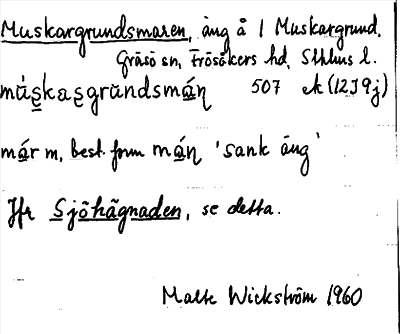 Muskargrundsmaren, äng å 1 Muskargrund,
Gräsö sn, Frösåkers hd, Sthlms l.
mùskasgrundsmán 507 ek (12J9j)
már m, best. form mán 'sank äng'
Jfr Sjöhägnaden, se detta.
Malte Wickström 1960